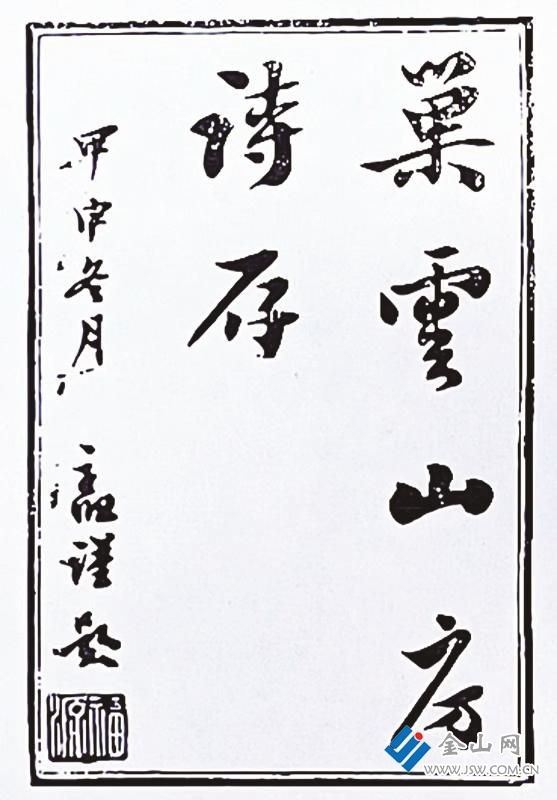 巢雲山房
诗存
甲申冬月
謹题
福源
金山网
WWW.JSW.COM.CN